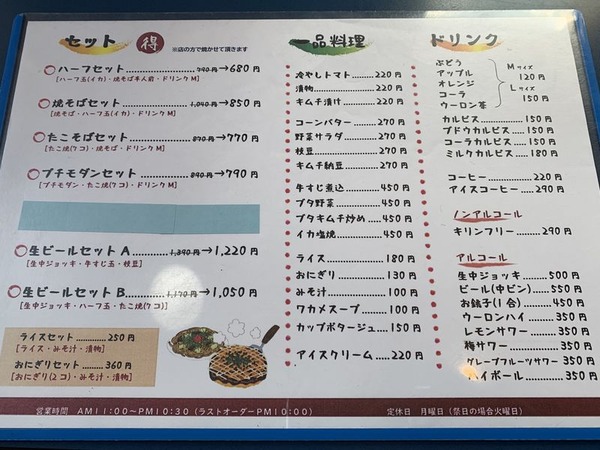 セット 得 ※店の方で焼かせて頂きます
ハーフセット 790円→680円
[ハーフ玉(イカ)・焼そば半人前・ドリンクM]
焼そばセット 1,040円→850円
[焼そば・ハーフ玉(イカ)・ドリンクM]
たこそばセット 870円→770円
[たこ焼(7コ)・焼そば・ドリンクM]
プチモダンセット 890円→790円
[プチモダン・たこ焼(7コ)・ドリンクM]
生ビールセットA 1,390円→1,220円
[生中ジョッキ・牛すじ玉・枝豆]
生ビールセットB 1,170円→1,050円
[生中ジョッキ・ハーフ玉・たこ焼(7コ)]
ライスセット 250円
[ライス・みそ汁・漬物]
おにぎりセット 360円
[おにぎり(2コ)・みそ汁・漬物]
一品料理
冷やしトマト 220円
漬物 220円
キムチ漬け 220円
コーンバター 270円
野菜サラダ 270円
枝豆 270円
キムチ納豆 270円
牛すじ煮込 450円
ブタ野菜 450円
ブタキムチ炒め 450円
イカ塩焼 450円
ライス 180円
おにぎり 130円
みそ汁 100円
ワカメスープ 100円
カップポタージュ 150円
アイスクリーム 220円
ドリンク
ぶどう
アップル
オレンジ
コーラ
ウーロン茶
Mサイズ
120円
Lサイズ
150円
カルピス 150円
ブドウカルピス 150円
コーラカルピス 150円
ミルクカルピス 180円
コーヒー 220円
アイスコーヒー 290円
ノンアルコール
キリンフリー 290円
アルコール
生中ジョッキ 500円
ビール(中ビン) 550円
お銚子(1合) 450円
ウーロンハイ 350円
レモンサワー 350円
梅サワー 350円
グレープフルーツサワー 350円
ハイボール 350円
営業時間 AM11:00〜PM10:30(ラストオーダーPM10:00) 定休日 月曜日(祭日の場合火曜日)